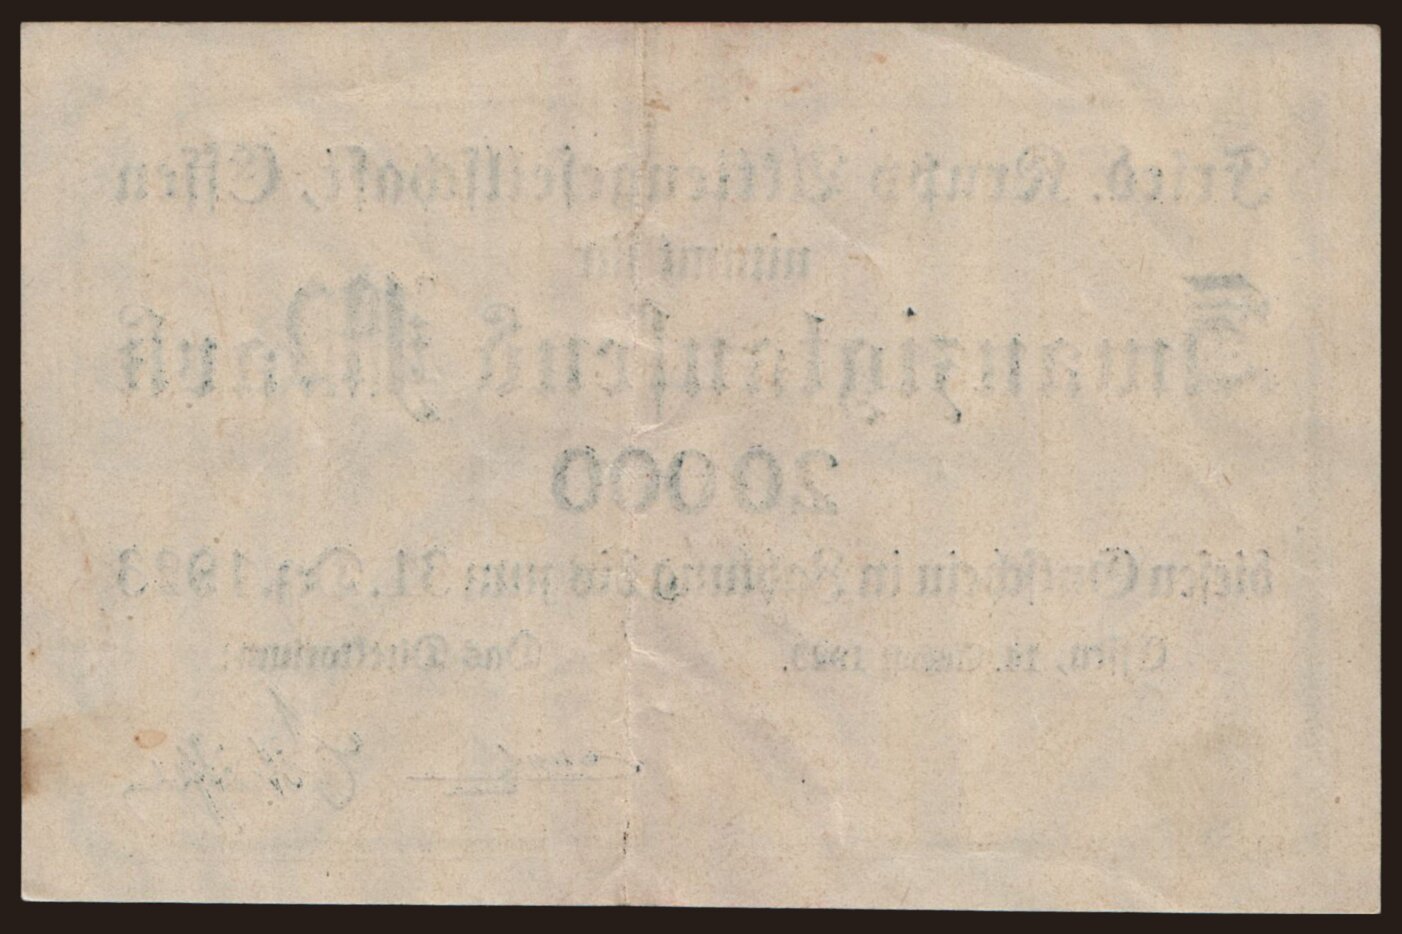 Fried. Krupp Aktiengesellschaft, Essen
nimmt für
Zwanzigtausend Mark
20000
diesen Gutschein in Zahlung bis zum 31. Dez. 1923
Essen, 1923.
Das Direktorium: